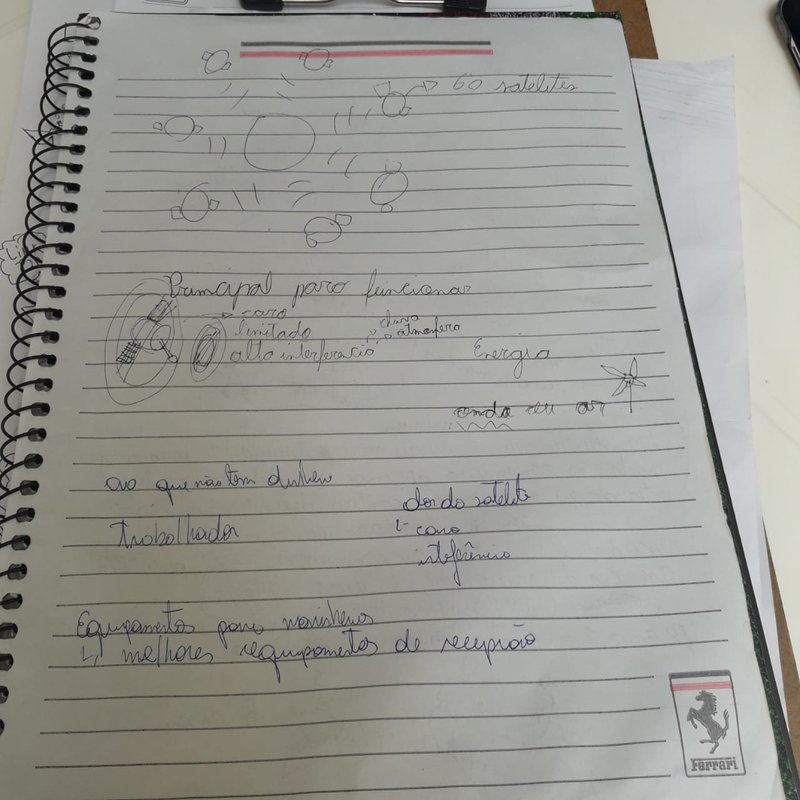 60 satelites
Principal para funcionar
caro
limitado
chuva
atmosfera
alta interferencia
Energia
onda ou ar
ao que não tem dinheiro
dor do satelite
Trabalhador
caro
interferência
Equipamentos para marinheiros
melhores equipamentos de recepção
Ferrari